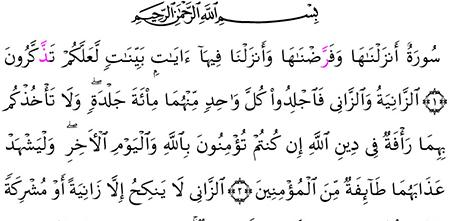 بِسْمِ اللَّهِ الرَّحْمَٰنِ الرَّحِيمِ
سُورَةٌ أَنزَلْنَٰهَا وَفَرَّضْنَٰهَا وَأَنزَلْنَا فِيهَآ ءَايَٰتٍۭ بَيِّنَٰتٍ لَعَلَّكُمْ تَذَّكَّرُونَ
﴿١﴾ الزَّانِيَةُ وَالزَّانِي فَاجْلِدُوا كُلَّ وَاحِدٍ مِنْهُمَا مِائَةَ جَلْدَةٍ ۖ وَلَا تَأْخُذْكُم
بِهِمَا رَأْفَةٌ فِي دِينِ اللَّهِ إِن كُنتُمْ تُؤْمِنُونَ بِاللَّهِ وَالْيَوْمِ الْأَخِرِ ۖ وَلْيَشْهَدْ
عَذَابَهُمَا طَآئِفَةٌ مِّنَ الْمُؤْمِنِينَ ﴿٢﴾ الزَّانِي لَا يَنكِحُ إِلَّا زَانِيَةً أَوْ مُشْرِكَةً